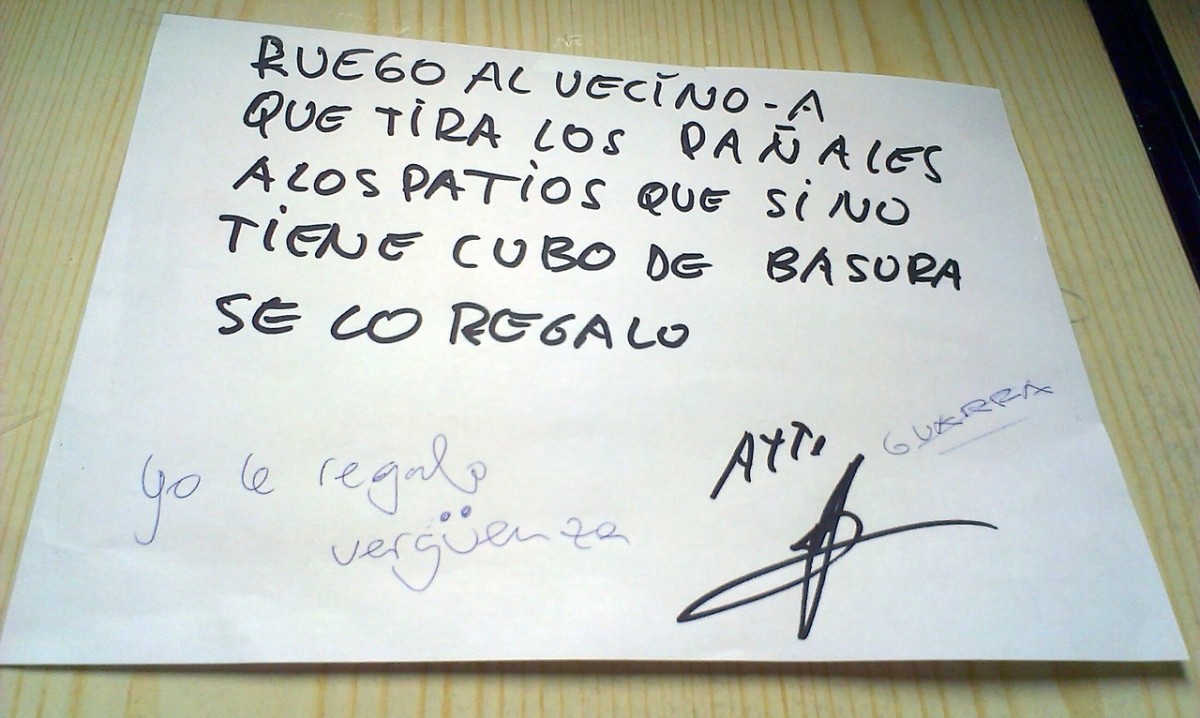 RUEGO AL VECINO-A
QUE TIRA LOS PAÑALES
A LOS PATIOS QUE SI NO
TIENE CUBO DE BASURA
SE LO REGALO
yo le regalo
vergüenza
ATTE
GUARRA